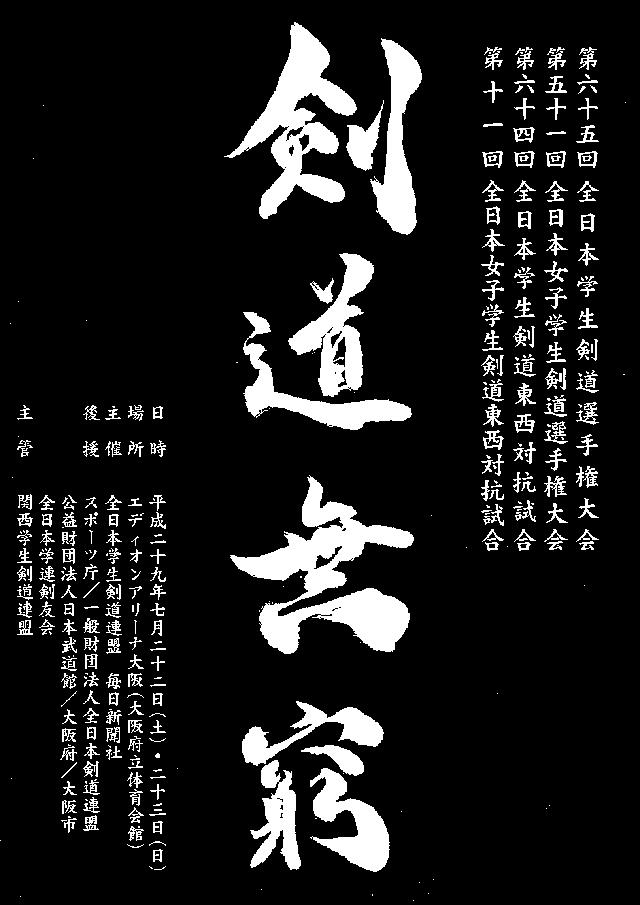 第六十五回 全日本学生剣道選手権大会
第五十一回 全日本女子学生剣道選手権大会
第六十四回 全日本学生剣道東西対抗試合
第十一回 全日本女子学生剣道東西対抗試合
剣道無窮
日時 平成二十九年七月二十二日(土)・二十三日(日)
場所 エディオンアリーナ大阪(大阪府立体育会館)
主催 全日本学生剣道連盟 毎日新聞社
後援 スポーツ庁/一般財団法人全日本剣道連盟
公益財団法人日本武道館/大阪府/大阪市
全日本学連剣友会
主管 関西学生剣道連盟